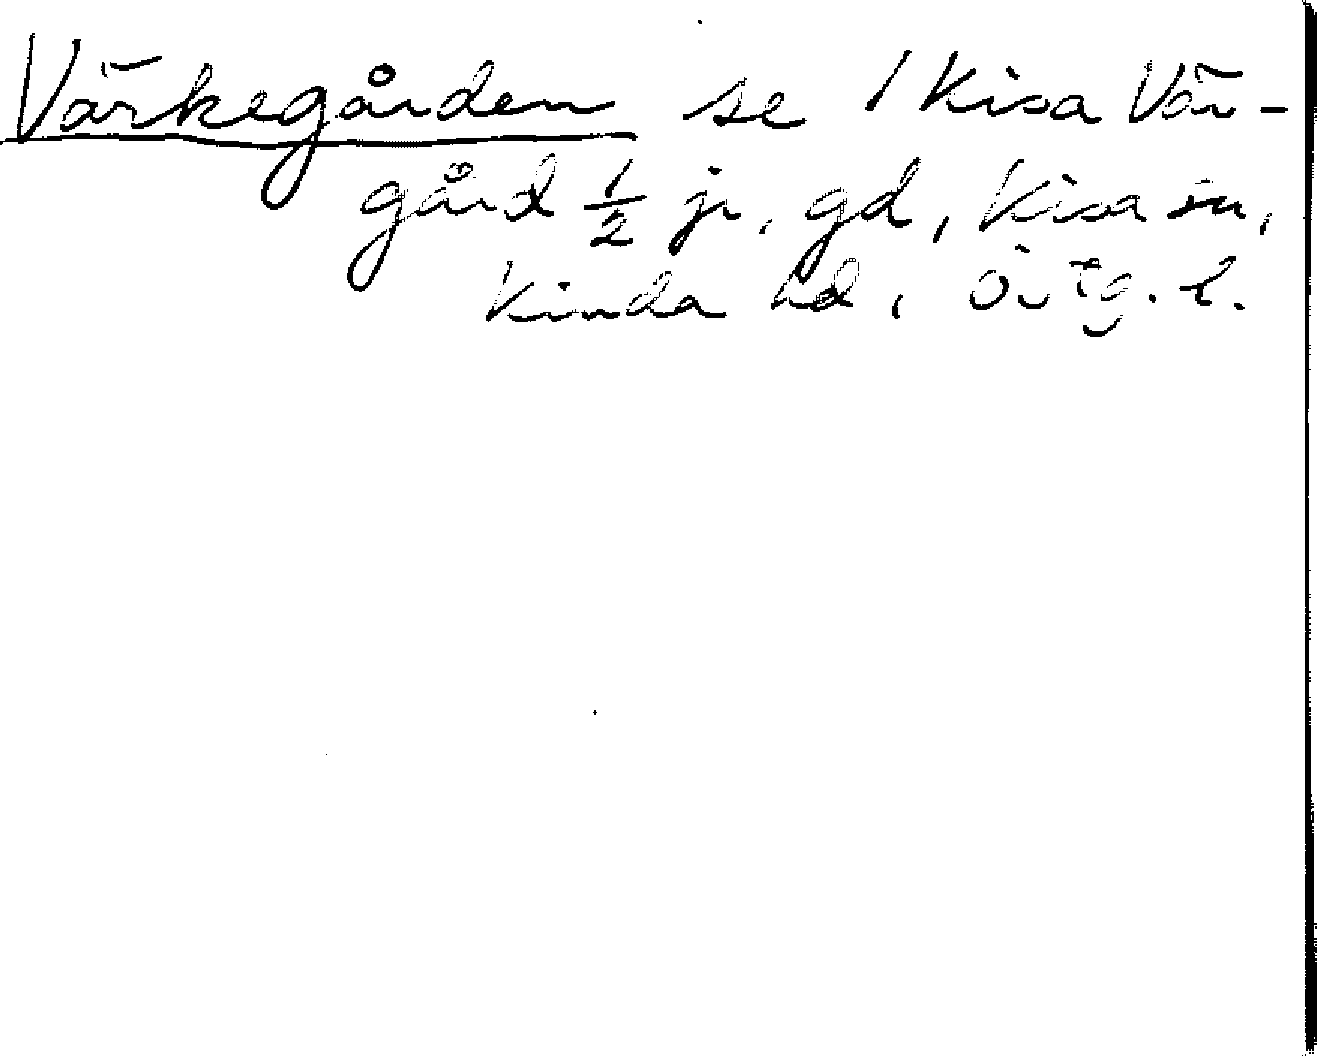 Värkegården se / Kisa Vär-
gård 1/2 jr, gd, Kisa sn,
Kinda hd, Östg. l.